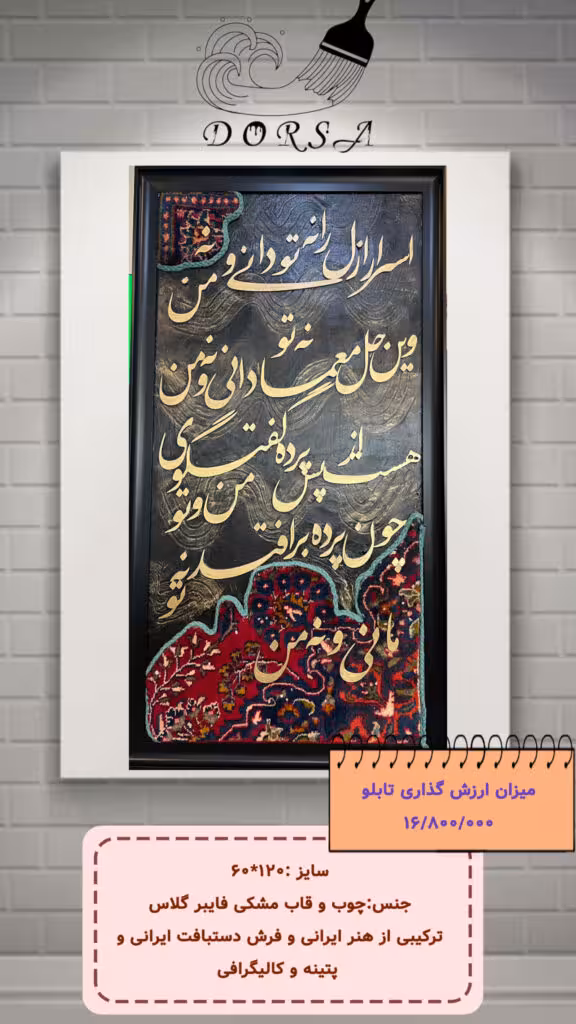 DORSA
اسرار ازل را نه تو دانی و نه من
وین حل معما نه تو دانی و نه من
هست از پس پرده گفتگوی من و تو
چون پرده برافتد نه تو مانی و نه من
میزان ارزش گذاری تابلو
۱۶/۸۰۰/۰۰۰
سایز :۱۲۰*۶۰
جنس:چوب و قاب مشکی فایبر گلاس
ترکیبی از هنر ایرانی و فرش دستبافت ایرانی و
پتینه و کالیگرافی